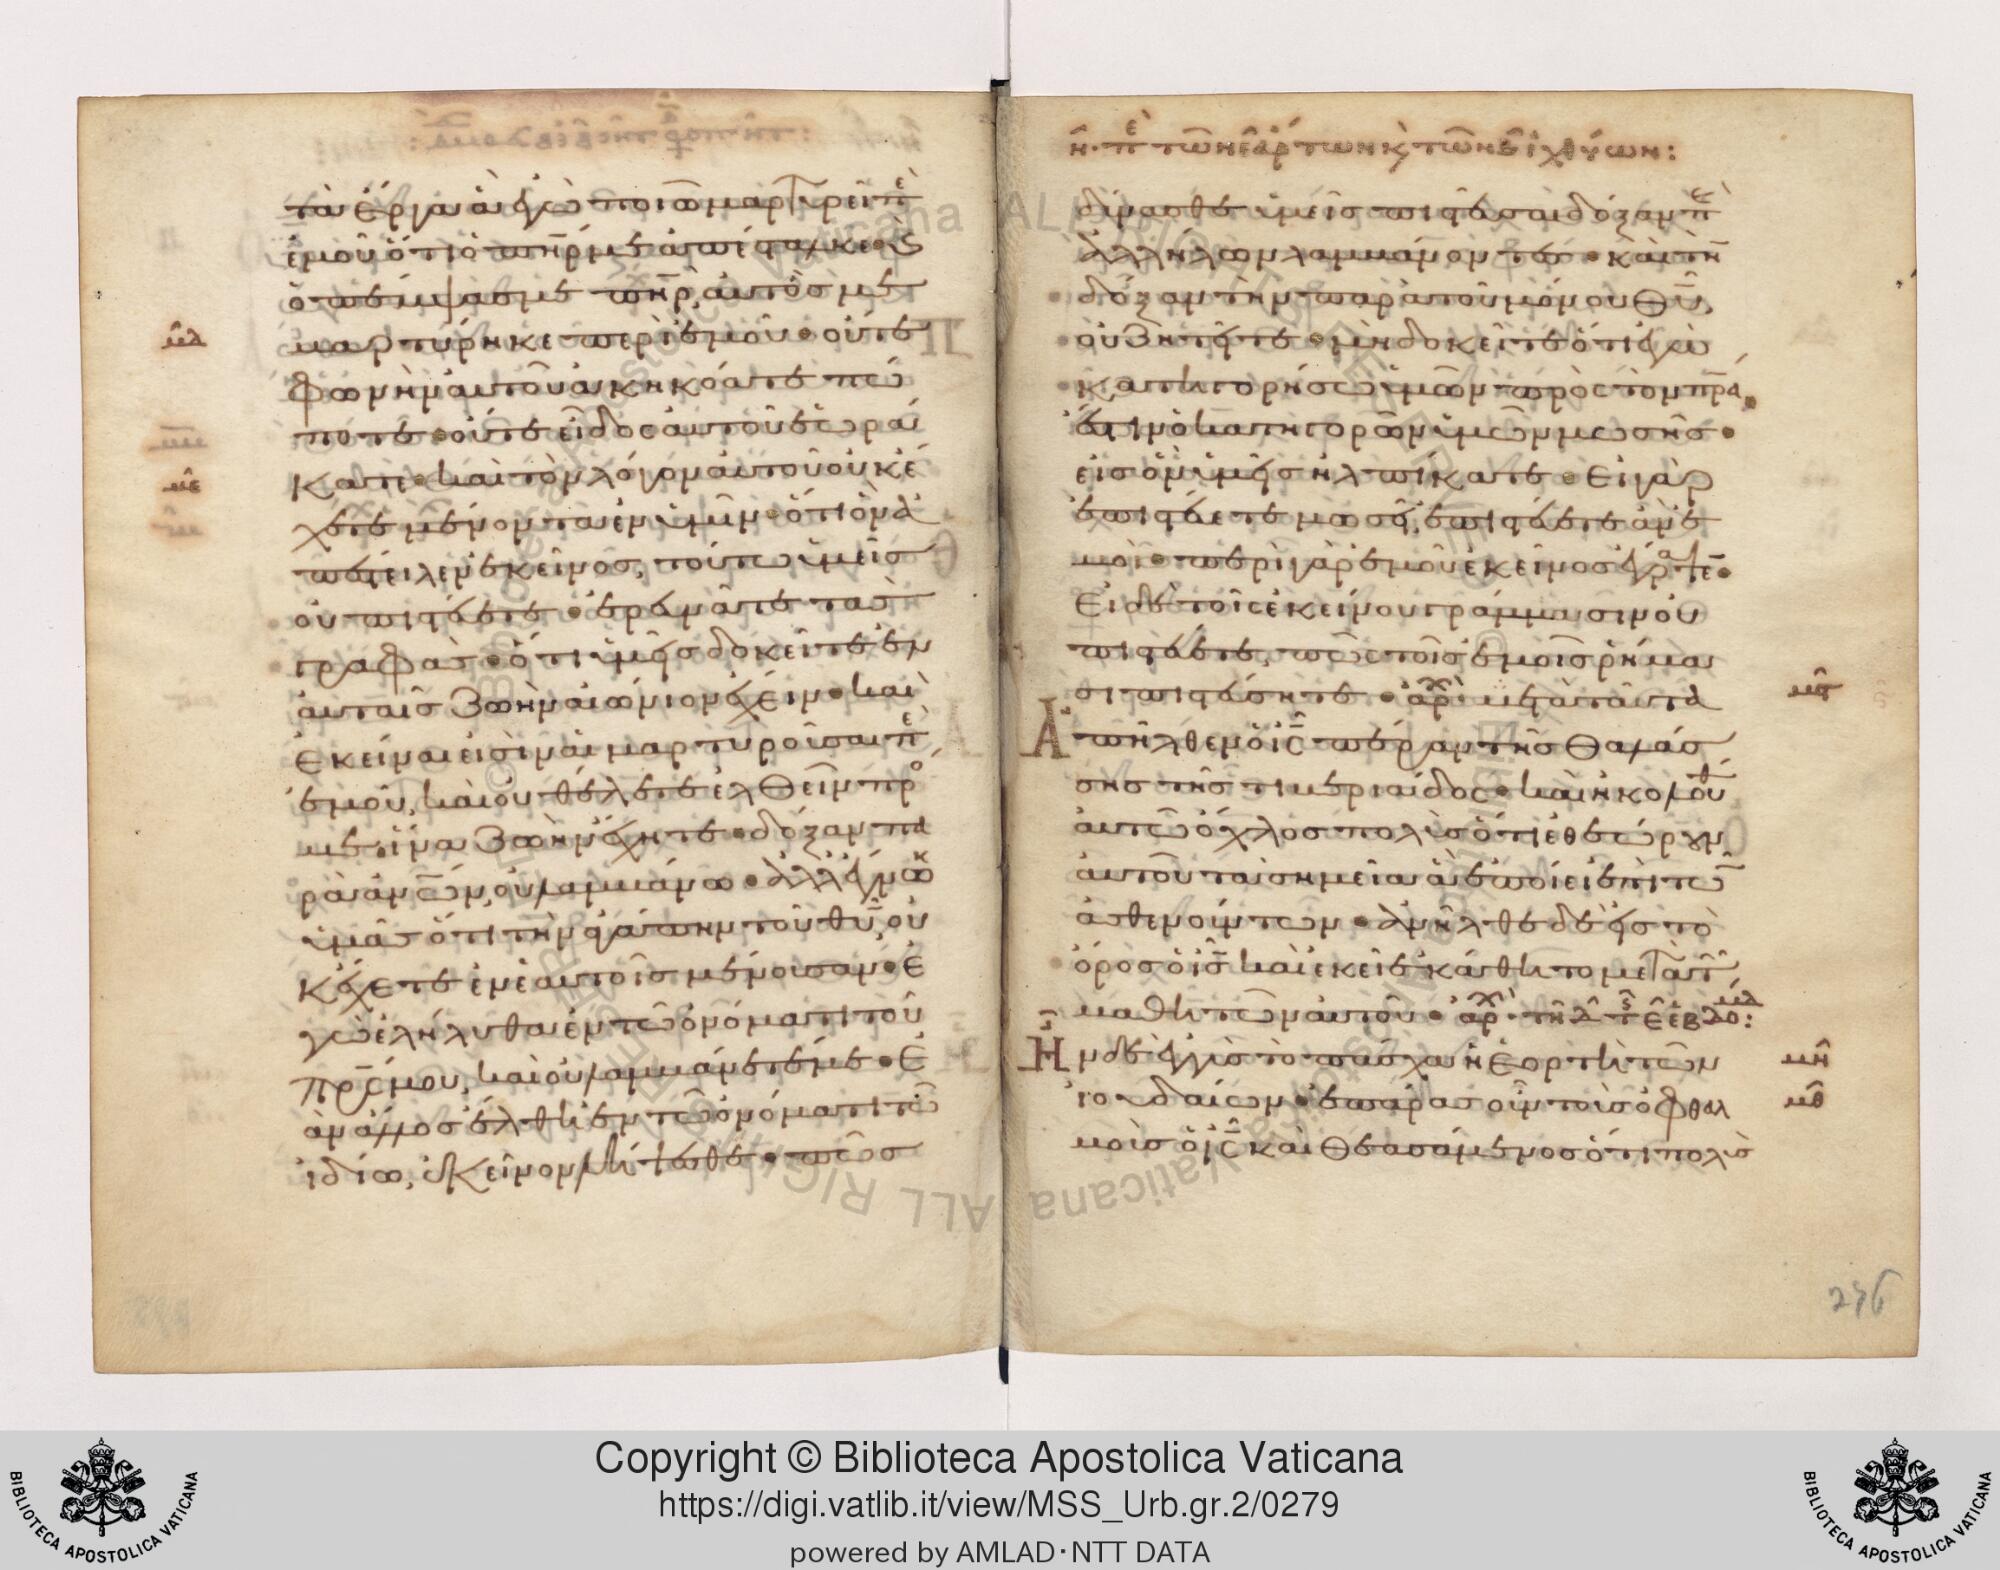 τὰ ἔργα ἃ ἐγὼ ποιῶ μαρτυρεῖ πε
ἐμοῦ ὅτι ὁ πηρ με ἀπέσταλκε · κ
ὁ πέμψας με πηρ, αὐτὸς με
μαρτύρηκε περὶ ἐμοῦ · οὔτε
φωνὴν αὐτοῦ ἀκηκόατε πώ
ποτε · οὔτε εἶδος αὐτοῦ ἑωρά
κατε · καὶ τὸν λόγον αὐτοῦ οὐκ ἔ
χετε μένοντα ἐν ὑμῖν · ὅτι ὃν ἀ
πέστειλεν ἐκεῖνος, τούτω ὑμεῖς
οὐ πιστεύετε · ἐραυνᾶτε τὰς
γραφὰς · ὅτι ὑμεῖς δοκεῖτε ἐν
αὐταῖς ζωὴν αἰώνιον ἔχειν · καὶ
ἐκεῖναι εἰσὶν αἱ μαρτυροῦσαι πε
ἐμοῦ, καὶ οὐ θέλετε ἐλθεῖν πρό
με ἵνα ζωὴν ἔχητε · δόξαν πα
ρὰ ἀνων, οὐ λαμβάνω · ἀλλ' ἔγνωκ
ὑμᾶς ὅτι τὴν ἀγάπην τοῦ θυ, οὐ
κ ἔχετε ἐν ἑαυτοῖς μένουσαν · ἐ
γὼ ἐλήλυθα ἐν τῶ ὀνόματι τοῦ
πρς μου, καὶ οὐ λαμβάνετέ με · ἐ
ὰν ἄλλος ἔλθη ἐν τῶ ὀνόματι τῶ
ἰδίω, ἐκεῖνον λήψεσθε · πῶς
μδ
με
η · πε τῶν ε ἄρτων κ τῶν β ἰχθύων :
δύνασθε ὑμεῖς πιστεῦσαι δόξαν πε
ἀλλήλων λαμβάνοντες · καὶ τὴν
δόξαν τὴν παρὰ τοῦ μόνου θυ,
οὐ ζητεῖτε · μὴ δοκεῖτε ὅτι ἐγὼ
κατηγορήσω ὑμῶν πρὸς τὸν πρα ·
ἔστιν ὁ κατηγορῶν ὑμῶν μωσῆς ·
εἰς ὃν ὑμεῖς ἠλπίκατε · εἰ γὰρ
ἐπιστεύετε μωσῆ, ἐπιστεύετε ἂν ἐ
μοὶ · περὶ γὰρ ἐμοῦ ἐκεῖνος ἔγραψεν ·
εἰ δὲ τοῖς ἐκείνου γράμμασιν οὐ
πιστεύετε, πῶς τοῖς ἐμοῖς ῥήμα
σι πιστεύσητε · ἀρχ μετὰ ταῦτα
ἀπῆλθεν ὁ ις πέραν τῆς θαλάσ
σης τῆς τιβεριάδος · καὶ ἠκολου
αὐτῶ ὄχλος πολὺς ὅτι ἐθεώρουν
αὐτοῦ τὰ σημεῖα ἃ ἐποίει ἐπὶ τῶ
ἀσθενούντων · ἀνῆλθε δὲ εἰς τὸ
ὄρος ὁ ις καὶ ἐκεῖ ἐκάθητο μετὰ τ
μαθητῶν αὐτοῦ · ἀρχ
ην δὲ ἐγγὺς τὸ πάσχα ἡ ἑορτὴ τῶν
ἰουδαίων · ἐπάρας οὖν τοὺς ὀφθαλ
μοὺς ὁ ις καὶ θεασάμενος ὅτι πολὺς
μς
μη
μθ
236
Copyright © Biblioteca Apostolica Vaticana
https://digi.vatlib.it/view/MSS_Urb.gr.2/0279
powered by AMLAD·NTT DATA
BIBLIOTECA APOSTOLICA VATICANA
BIBLIOTECA APOSTOLICA VATICANA